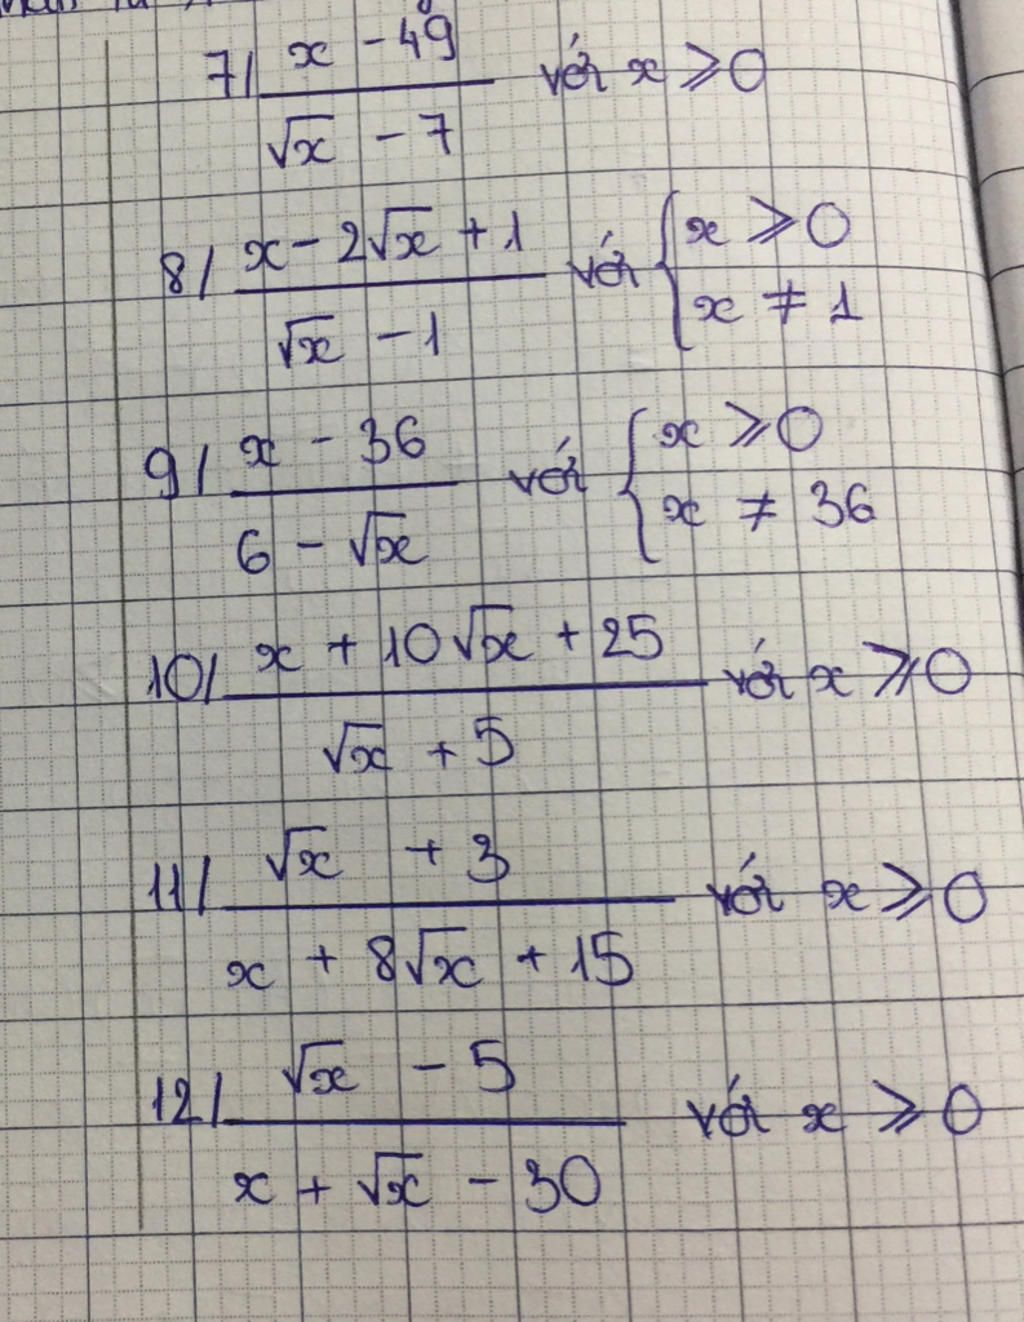 7/ x - 49 / √x - 7 với x ⩾ 0
8/ x - 2√x + 1 / √x - 1 với { x ⩾ 0
x ≠ 1
9/ x - 36 / 6 - √x với { x ⩾ 0
x ≠ 36
10/ x + 10√x + 25 / √x + 5 với x ⩾ 0
11/ √x + 3 / x + 8√x + 15 với x ⩾ 0
12/ √x - 5 / x + √x - 30 với x ⩾ 0